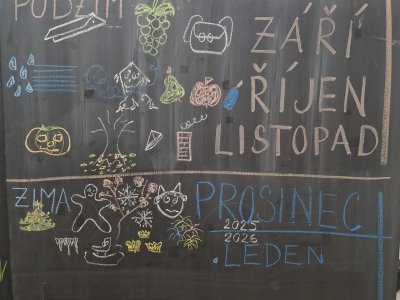 PODZIM
ZÁŘÍ
ŘÍJEN
LISTOPAD
ZIMA
PROSINEC
2025
2026
LEDEN